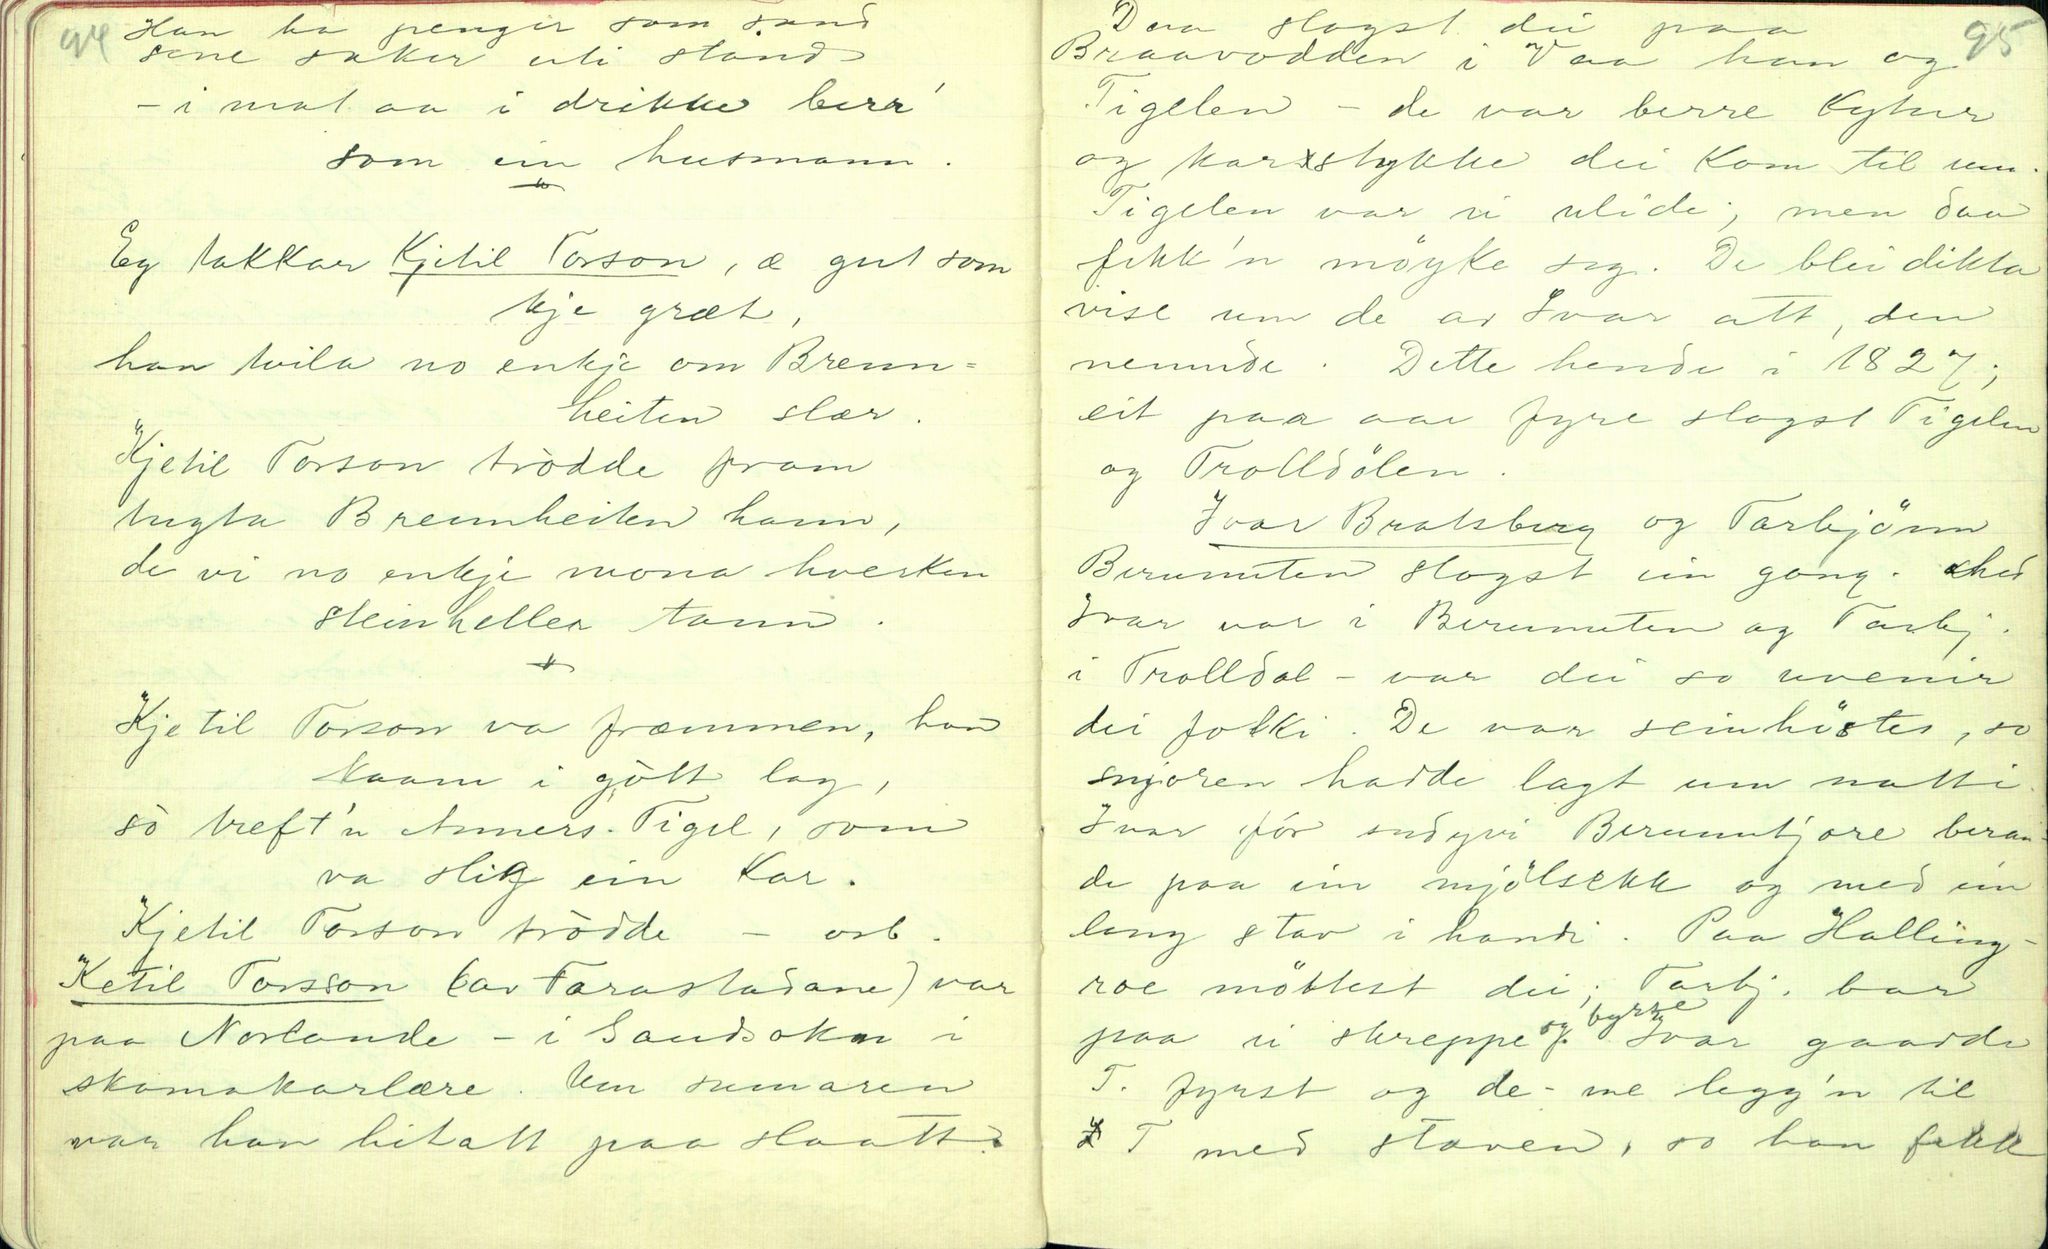 94
Han ha pengir som sand
sine saker uti stand
- i mat aa i drikke berr'
som ein husmann.
Eg takkar Kjetil Torson, æ gut som
kje græt,
han tvila no enkje om Breun=
heiten slær.
Kjetil Torson trødde fram
tugta Breunheiten hann,
de vi no enkje mona hverken
stein heller tann.
Kjetil Torson va fræmmen, han
kaam i gòtt lag,
sò treft'n Anners Tigel, som
va slig ein kar.
Kjetil Torson trødde - osb.
Ketil Torsson (av Farastadane) var
paa Norlande - i Saudsokn i
skomakarlære. Um sumaren
var han hit att paa slaatt.
95
Daa slogst dei paa
Braavodden i Vaa han og
Tigelen - de var berre kytur
og karstykke dei kom til um.
Tigelen var ei ulide; men daa
fekk'n möyke seg. De blei dikta
vise um de av Ivar att, den
nemnde. Dette hende i 1827;
eit paa aar fyre slogst Tigelen
og Trolldölen.
Ivar Bratsberg og Tarbjönn
Berunuten slogst ein gong. Med
Ivar var i Berunuten og Tarbj.
i Trolldal - var dei so uvenir
dei folki. De var seinhöstes, so
snjoren hadde lagt um natti.
Ivar fór undyvi Berunutjore beran-
de paa ein mjölsekk og med ein
lang stav i handi. Paa Halling-
roe möttest dei; Tarbj. bar
paa ei skreppe og byrre Ivar gaadde
T. fyrst og de-me legg'n til
T med staven, so han fekk